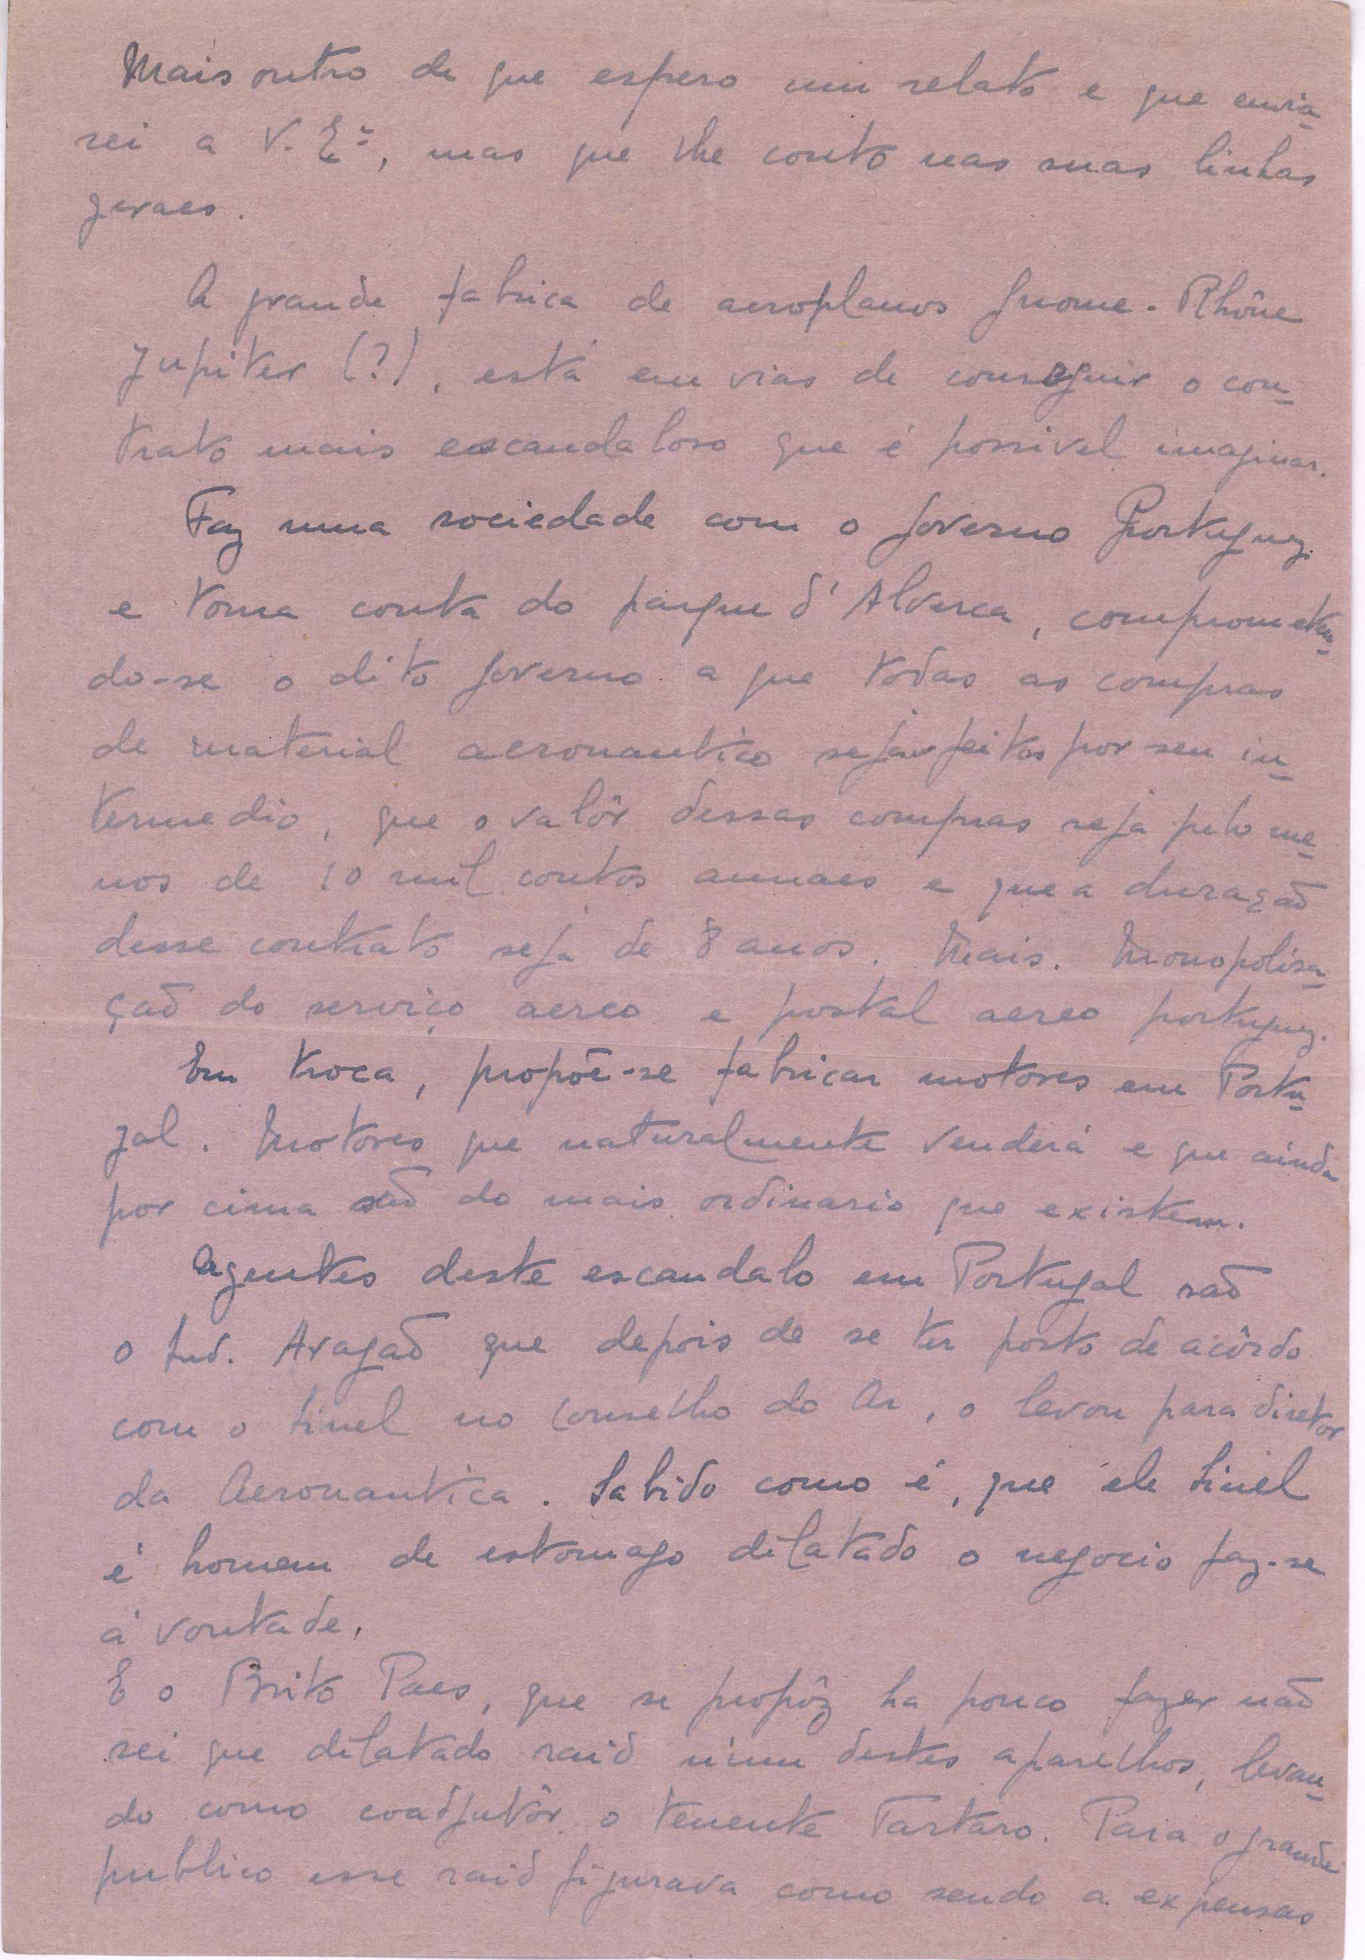 Mais outro de que espero um relato e que envia-
rei a V. Exª, mas que lhe conto nas suas linhas
geraes.
A grande fabrica de aeroplanos Gnome-Rhône
Jupiter (?), está em vias de conseguir o con-
trato mais escandaloso que é possivel imaginar.
Faz uma sociedade com o Governo Portuguez
e toma conta do parque d'Alverca, comprometen-
do-se o dito Governo a que todas as compras
de material aeronautico sejam feitas por seu in-
termedio, que o valôr dessas compras seja pelo me-
nos de 10 mil contos annaes e que a duração
desse contrato seja de 8 anos. Mais. Monopolisa-
ção do serviço aereo e postal aereo portuguez.
Em troca, propõe-se fabricar motores em Portu-
gal. Motores que naturalmente venderá e que ainda
por cima são do mais ordinario que existem.
Agentes deste escandalo em Portugal são
o Aragão que depois de se ter posto de acôrdo
com o Sinel no Conselho do Ar, o levou para diretor
da Aeronautica. Sabido como é, que ele Sinel
é homem de estomago dilatado o negocio faz-se
á vontade.
E o Brito Paes, que se propôz ha pouco fazer não
sei que dilatado raid n'um destes aparelhos, levan-
do como coadjutôr o tenente Tartaro. Para o grande
publico esse raid figurava como sendo a expensas